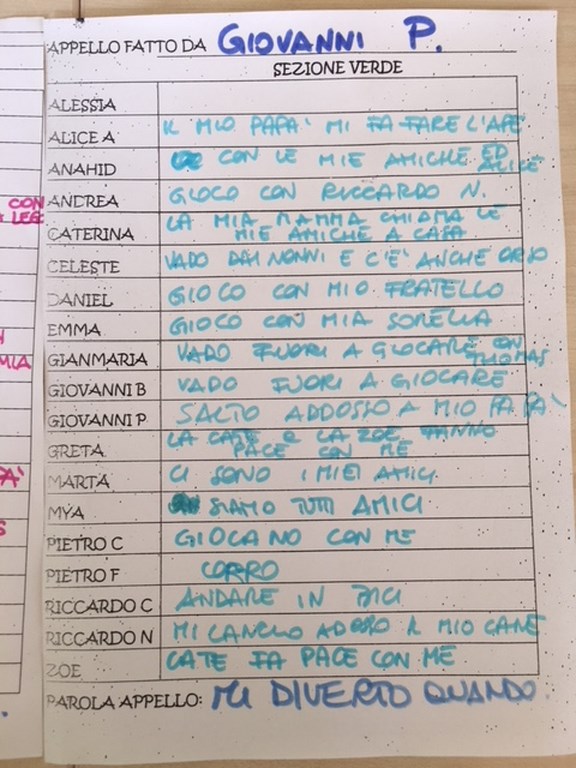 APPELLO FATTO DA GIOVANNI P.
SEZIONE VERDE
ALESSIA
ALICE A IL MIO PAPA' MI FA FARE L'APE
ANAHID CON LE MIE AMICHE ED ALICE
ANDREA GIOCO CON RICCARDO N.
CATERINA LA MIA MAMMA CHIAMA LE
MIE AMICHE A CASA
CELESTE VADO DAI NONNI E C'E' ANCHE
DANIEL GIOCO CON MIO FRATELLO
EMMA GIOCO CON MIA SORELLA
GIANMARIA VADO FUORI A GIOCARE CON THOMAS
GIOVANNI B VADO FUORI A GIOCARE
GIOVANNI P SALTO ADDOSSO A MIO PAPA'
GRETA LA CATE E LA ZOE FANNO
PACE CON ME
MARTA CI SONO I MIEI AMICI
MYA SIAMO TUTTI AMICI
PIETRO C GIOCANO CON ME
PIETRO F CORRO
RICCARDO C ANDARE IN BICI
RICCARDO N MI LANCIO ADOSSO IL MIO CANE
ZOE CATE FA PACE CON ME
PAROLA APPELLO: MI DIVERTO QUANDO
CON
LEE
MIA
PA'
S